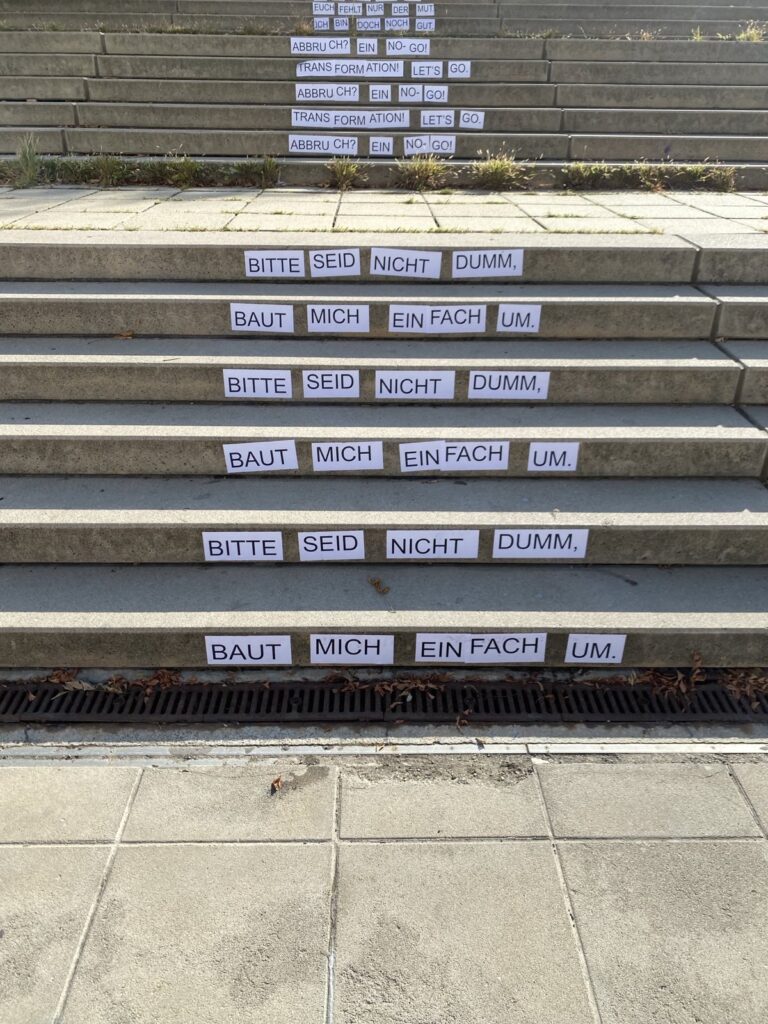 EUCH FEHLT NUR DER MUT.
ICH BIN DOCH NOCH GUT.
ABBRUCH? EIN NO-GO!
TRANSFORMATION! LET'S GO.
ABBRUCH? EIN NO-GO!
TRANSFORMATION! LET'S GO.
ABBRUCH? EIN NO-GO!
BITTE SEID NICHT DUMM,
BAUT MICH EINFACH UM.
BITTE SEID NICHT DUMM,
BAUT MICH EINFACH UM.
BITTE SEID NICHT DUMM,
BAUT MICH EINFACH UM.